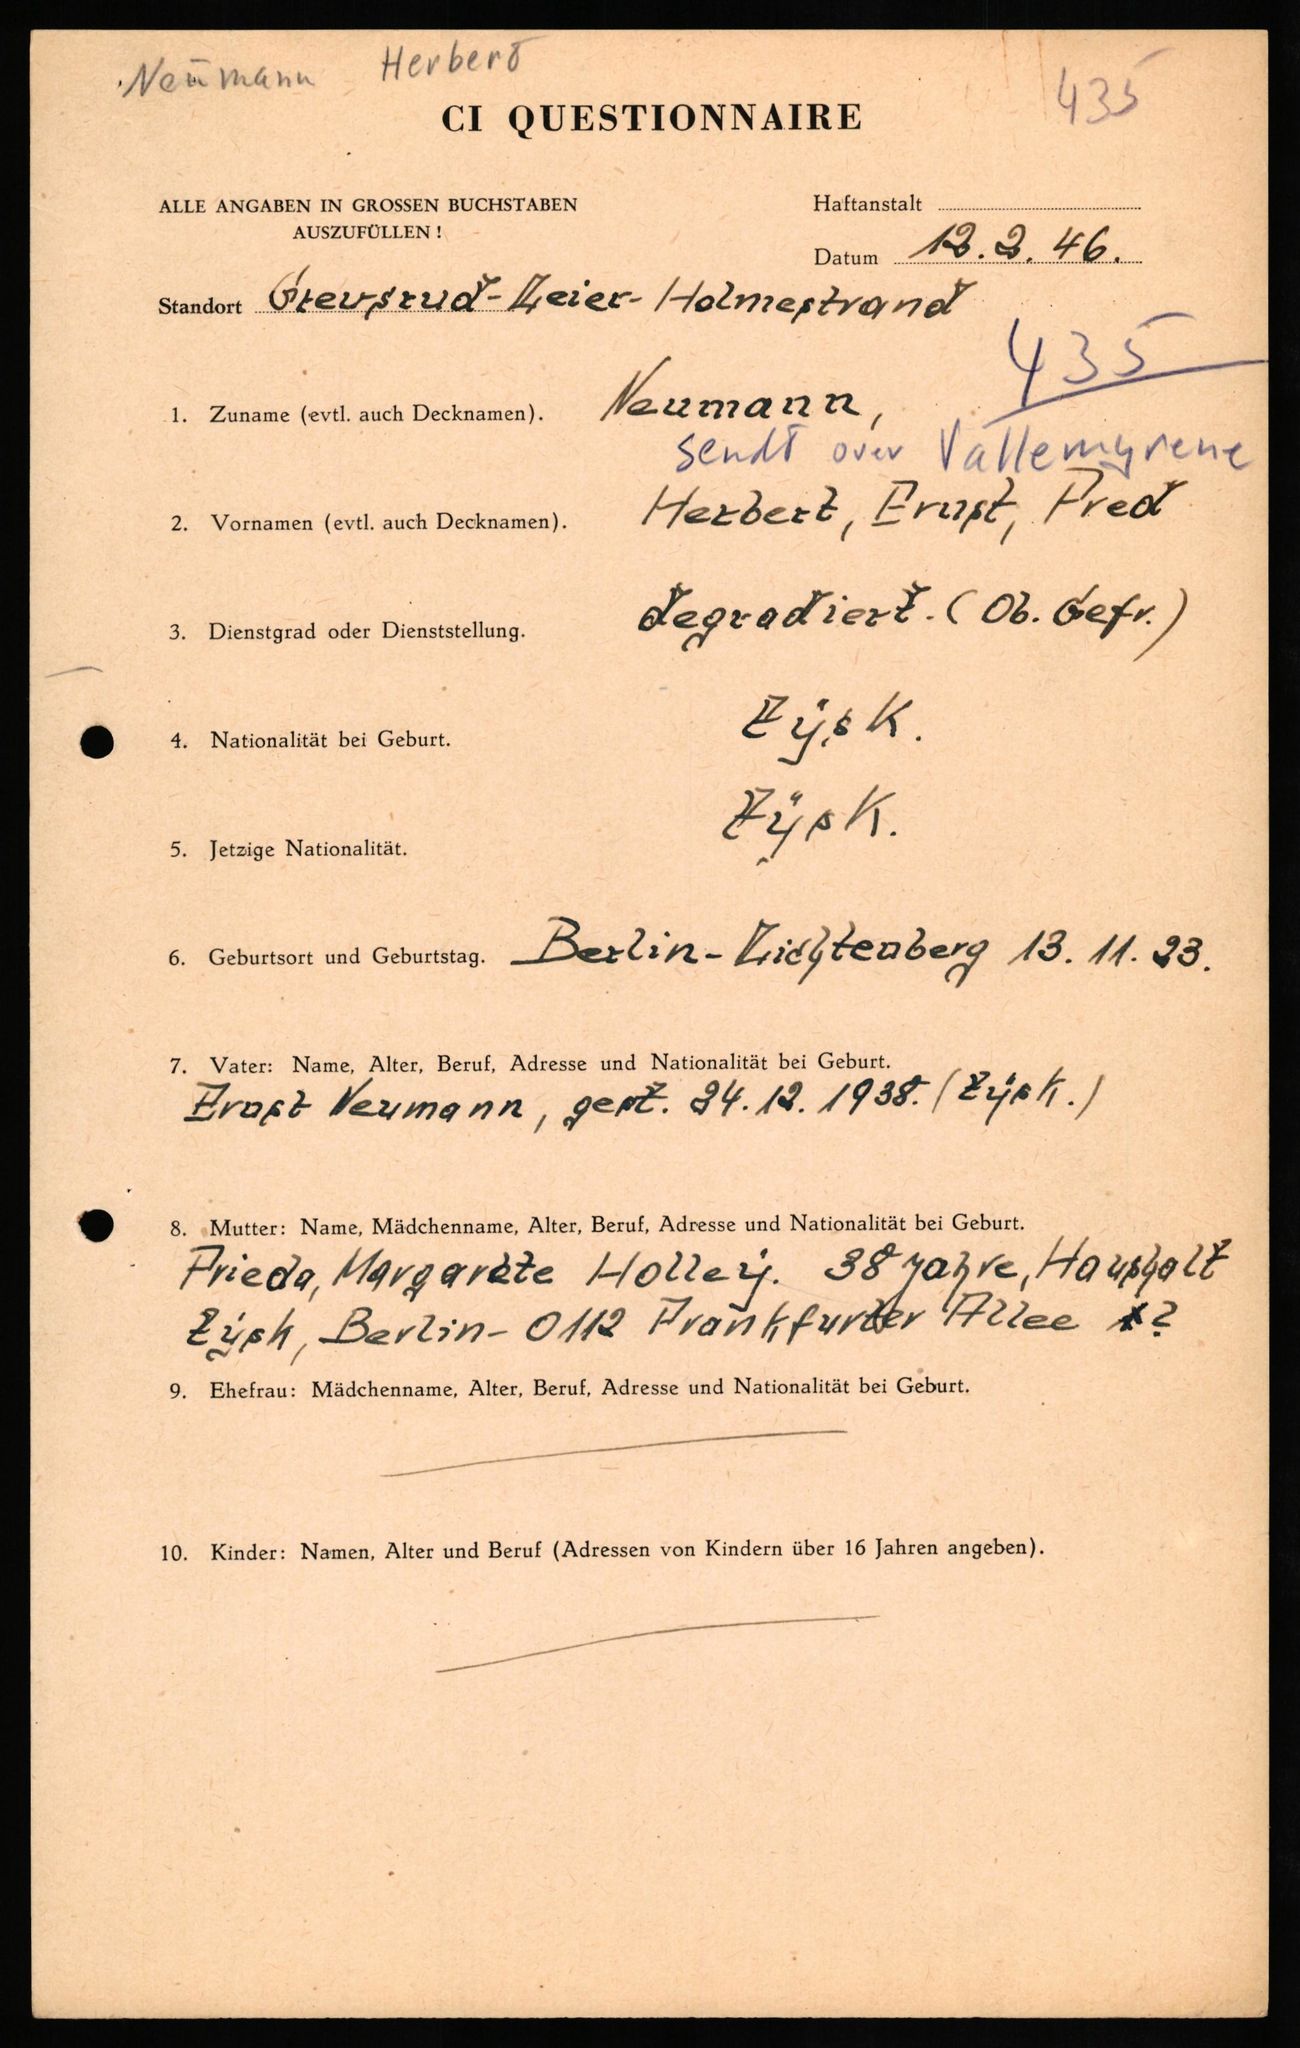 Neumann Herbert
435
CI QUESTIONNAIRE
ALLE ANGABEN IN GROSSEN BUCHSTABEN
AUSZUFÜLLEN!
Haftanstalt
Datum 12.2.46.
Standort Grevsrud-Leier-Holmestrand
435
1. Zuname (evtl. auch Decknamen). Neumann,
sendt over Vallemyrene
2. Vornamen (evtl. auch Decknamen). Herbert, Ernst, Fred
3. Dienstgrad oder Dienststellung. degradiert. (Ob. Gefr.)
4. Nationalität bei Geburt. Tysk.
5. Jetzige Nationalität. Tysk.
6. Geburtsort und Geburtstag. Berlin-Lichtenberg 13.11.23.
7. Vater: Name, Alter, Beruf, Adresse und Nationalität bei Geburt.
Ernst Neumann, gest. 24.12.1938. (Tysk.)
8. Mutter: Name, Mädchenname, Alter, Beruf, Adresse und Nationalität bei Geburt.
Frieda, Margarete Holley. 38 jahre, Haushalt
Tysk, Berlin-O112 Frankfurter Allee ?
9. Ehefrau: Mädchenname, Alter, Beruf, Adresse und Nationalität bei Geburt.
10. Kinder: Namen, Alter und Beruf (Adressen von Kindern über 16 Jahren angeben).